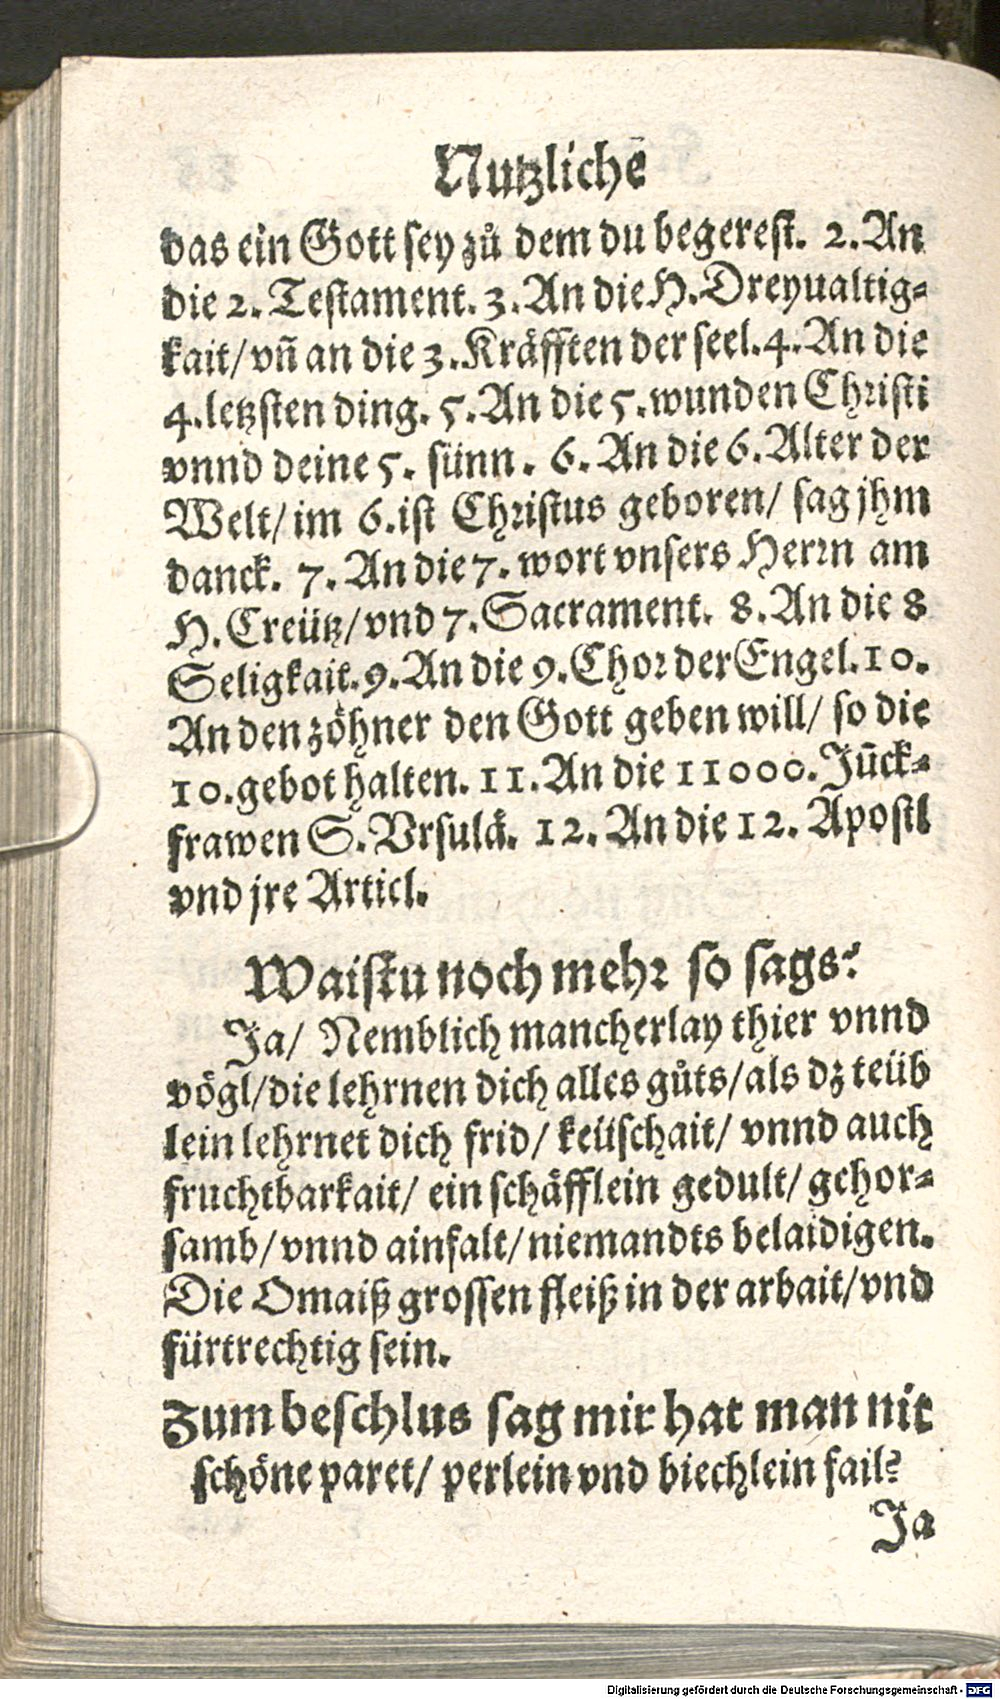 Nutzlichē
das ein Gott sey zů dem du begerest. 2. An
die 2. Testament. 3. An die H. Dreyualtig-
kait/ vn̄ an die 3. Kräfften der seel. 4. An die
4. letzsten ding. 5. An die 5. wunden Christi
vnnd deine 5. sünn. 6. An die 6. Alter der
Welt/ im 6. ist Christus geboren/ sag jhm
danck. 7. An die 7. wort vnsers Herrn am
H. Creütz/ vnd 7. Sacrament. 8. An die 8
Seligkait. 9. An die 9. Chor der Engel. 10.
An den zöhner den Gott geben will/ so die
10. gebot halten. 11. An die 11000. Jūck-
frawen S. Vrsulä. 12. An die 12. Apostl
vnd jre Articl.
Waistu noch mehr so sags?
Ja/ Nemblich mancherlay thier vnnd
vögl/ die lehrnen dich alles gůts/ als dz teüb
lein lehrnet dich frid/ keüschait/ vnnd auch
fruchtbarkait/ ein schäfflein gedult/ gehor-
samb/ vnnd ainfalt/ niemandts belaidigen.
Die Omaiß grossen fleiß in der arbait/ vnd
fürtrechtig sein.
Zum beschlus sag mir hat man nit
schöne paret/ perlein vnd biechlein fail?
Ja
Digitalisierung gefördert durch die Deutsche Forschungsgemeinschaft - DFG